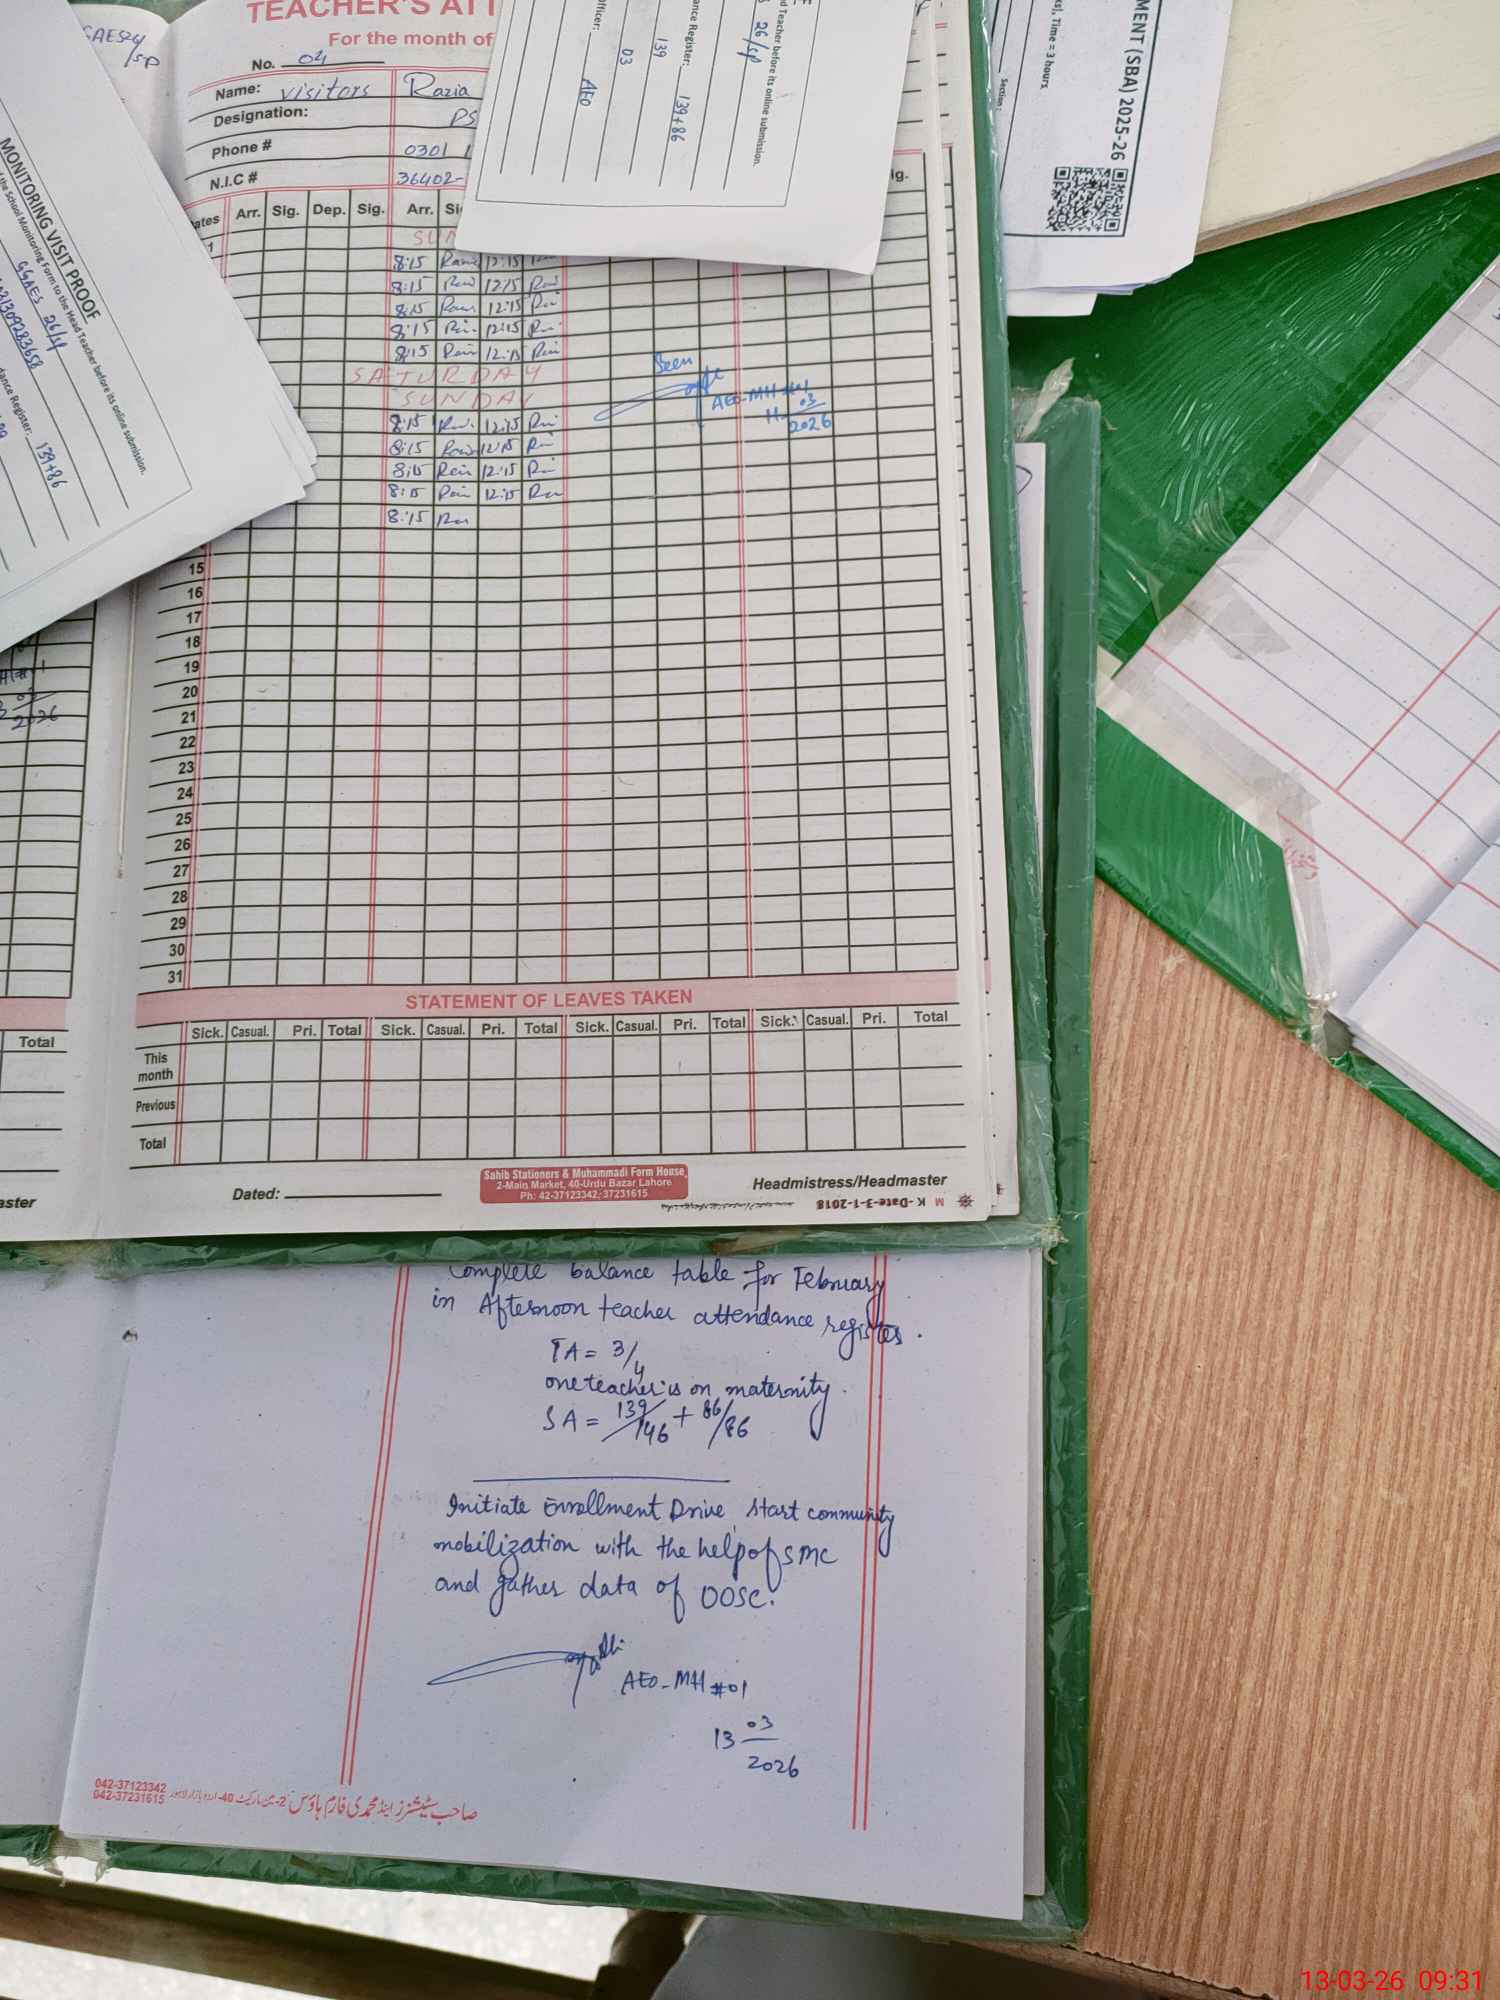 TEACHER'S ATT
For the month of
No. 04
Name: visitors Razia
Designation: PS
Phone # 0301
N.I.C # 36402-
Arr. Sig. Dep. Sig. Arr.
8:15 12:15
8:15 12:15
8:15 12:15
8:15 12:15
8:15 12:15
SATURDAY
SUNDAY
8:15 12:15
8:15 12:15
8:15 12:15
8:15 12:15
8:15
Seen
AEO-MH #01
11 03
2026
15
16
17
18
19
20
21
22
23
24
25
26
27
28
29
30
31
STATEMENT OF LEAVES TAKEN
Sick. Casual. Pri. Total Sick. Casual. Pri. Total Sick. Casual. Pri. Total Sick. Casual. Pri. Total
This
month
Previous
Total
Dated:
Sahib Stationers & Muhammadi Form House
2-Main Market, 40-Urdu Bazar Lahore
Ph: 42-37123342, 37231615
Headmistress/Headmaster
M K-Date-3-1-2018
Total
aster
2026
MONITORING VISIT PROOF
the School Monitoring Form to the Head Teacher before its online submission.
GGAES 26/SP
dance Register: 139+86
d Teacher before its online submission.
26/SP
ance Register: 139+86
139
03
Officer: AEO
MENT (SBA) 2025-26
Time = 3 hours
Section:
Complete balance table for February
in Afternoon teacher attendance register.
TA = 3/4
one teacher is on maternity.
SA = 139/146 + 86/86
Initiate Enrollment Drive, start community
mobilization with the help of SMC
and gather data of OOSC.
AEO-MH #01
13 03
2026
042-37123342
042-37231615
صاحب سٹیشنرز اینڈ محمدی فارم ہاؤس 2-مین مارکیٹ 40-اردو بازار لاہور
13-03-26 09:31